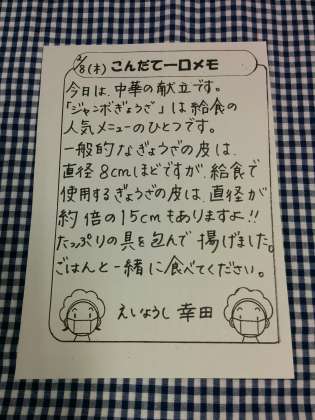 2/8(木) こんだて一口メモ
今日は、中華の献立です。
「ジャンボぎょうざ」は給食の
人気メニューのひとつです。
一般的なぎょうざの皮は、
直径8cmほどですが、給食で
使用するぎょうざの皮は、直径が
約倍の15cmもありますよ!!
たっぷりの具を包んで揚げました。
ごはんと一緒に食べてください。
えいようし 幸田